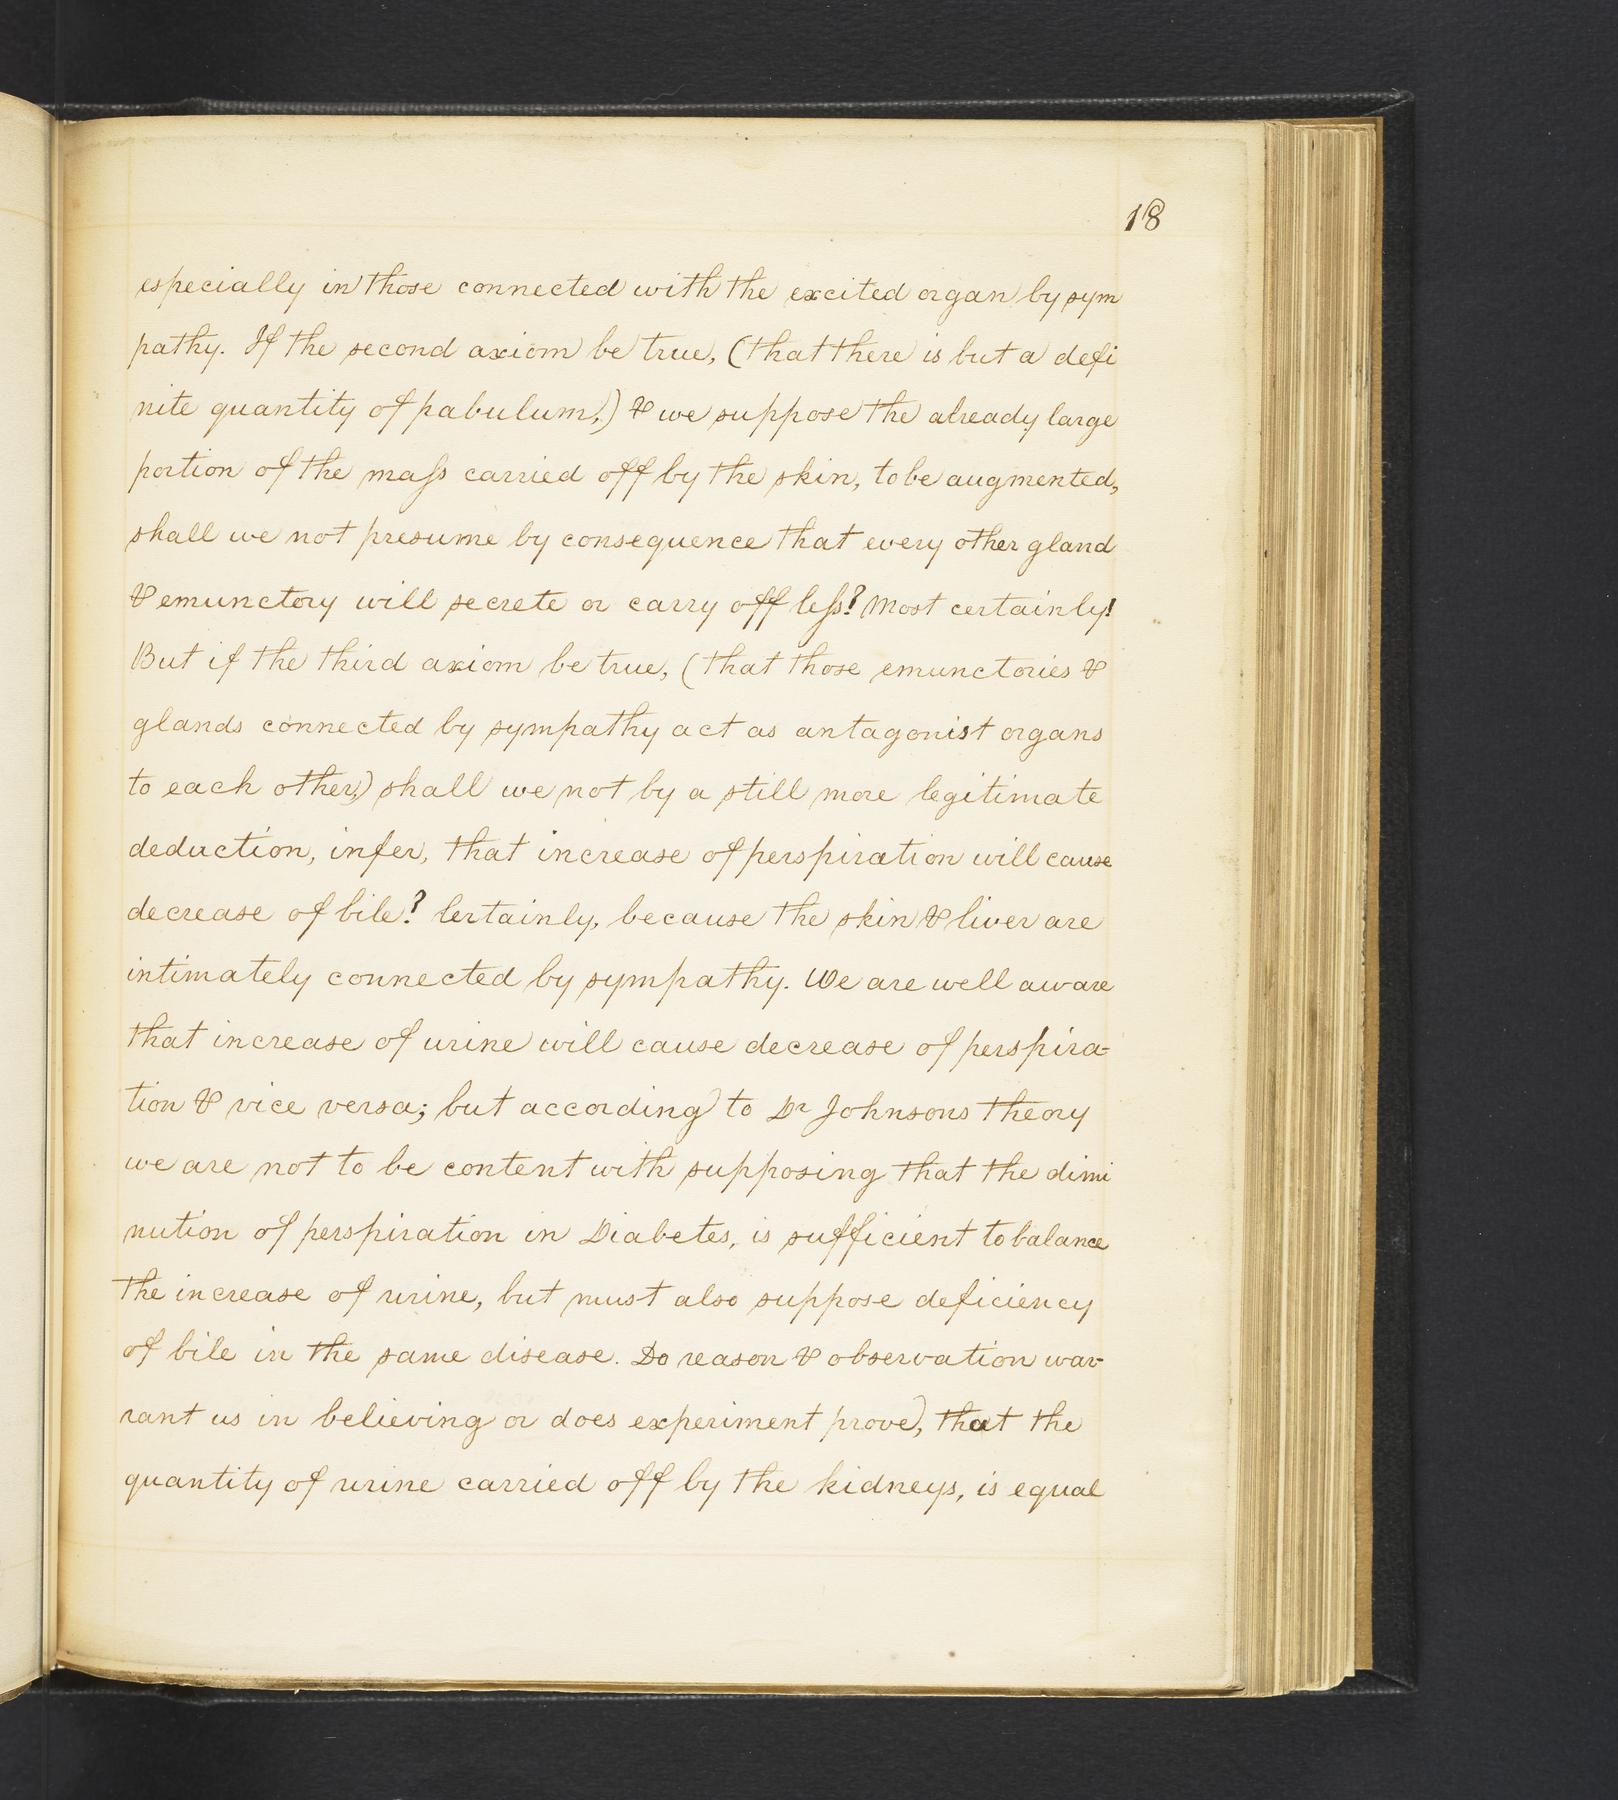 18
especially in those connected with the excited organ by sym
pathy. If the second axiom be true, (that there is but a defi
nite quantity of pabulum,) & we suppose the already large
portion of the maſs carried off by the skin, to be augmented,
shall we not presume by consequence that every other gland
& emunctory will secrete or carry off leſs? Most certainly!
But if the third axiom be true, (that those emunctories &
glands connected by sympathy act as antagonist organs
to each other,) shall we not by a still more legitimate
deduction, infer, that increase of perspiration will cause
decrease of bile? Certainly, because the skin & liver are
intimately connected by sympathy. We are well aware
that increase of urine will cause decrease of perspira-
tion & vice versa; but according to Dr Johnsons theory
we are not to be content with supposing that the dimi
nution of perspiration in Diabetes, is sufficient to balance
the increase of urine, but must also suppose deficiency
of bile in the same disease. Do reason & observation war-
rant us in believing or does experiment prove, that the
quantity of urine carried off by the kidneys, is equal